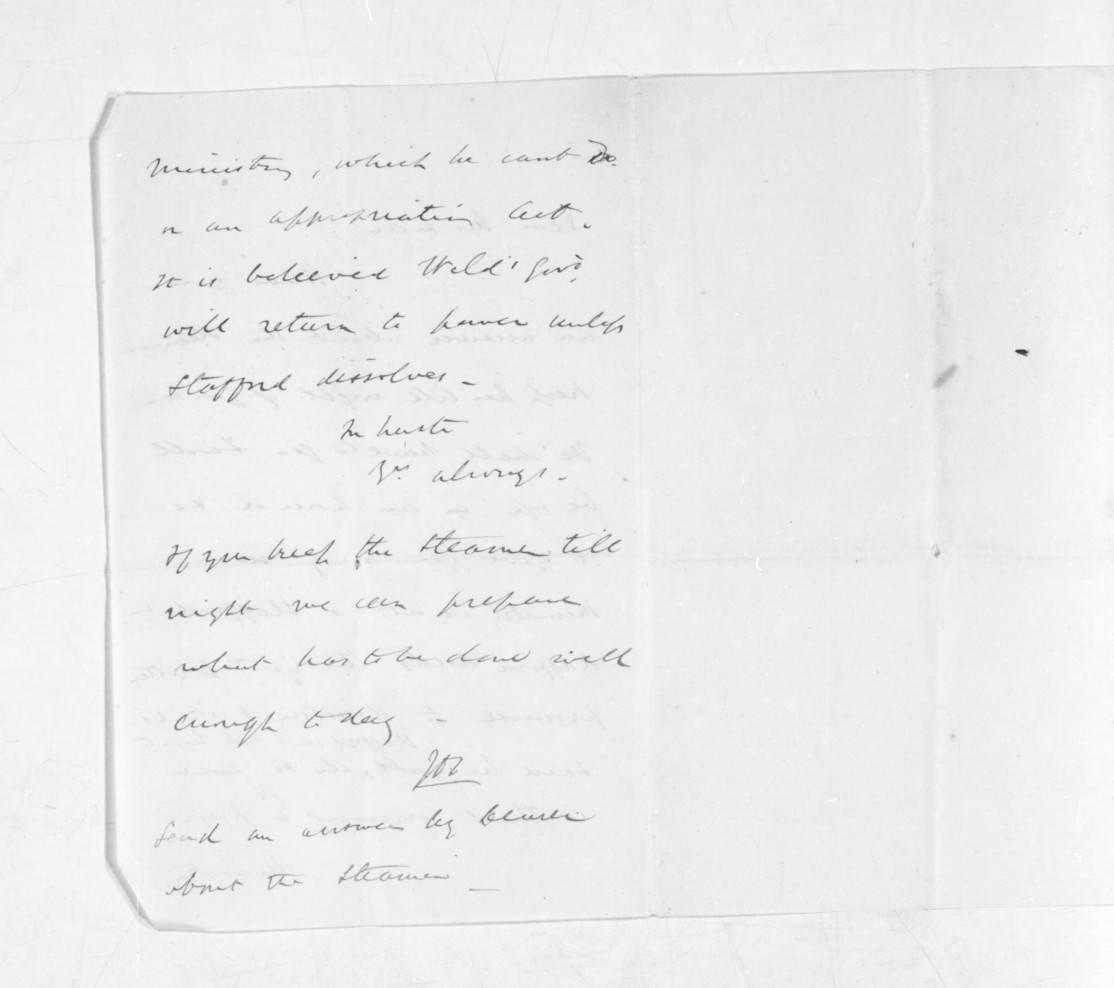 Ministry, which he cant do.
in an appropriation Act.
It is believed Weld's Govt.
will return to power unless
Stafford dissolves –
In haste
Yrs always –
If you keep the steamer till
night we can prepare
what has to be done well
enough today –
Send an answer by bearer
about the steamer –